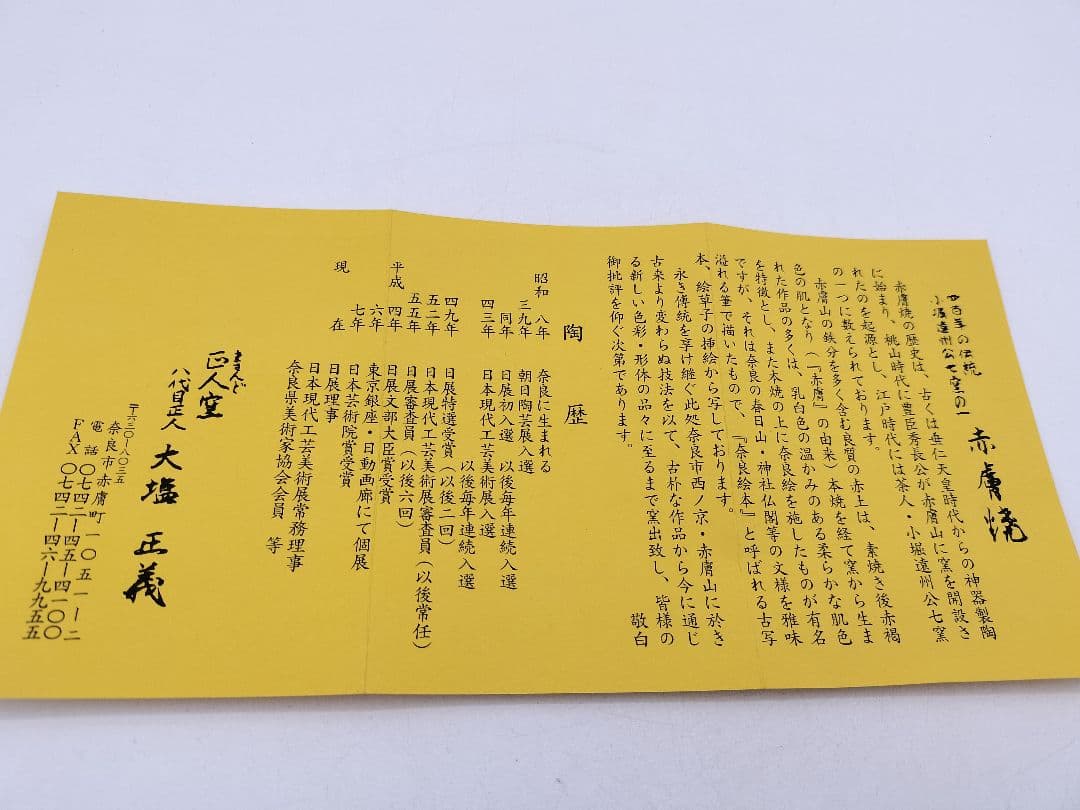 四百年の伝統
小堀遠州公七窯の一
赤膚燒
赤膚焼の歴史は、古くは垂仁天皇時代からの神器製陶
に始まり、桃山時代に豊臣秀長公が赤膚山に窯を開設さ
れたのを起源とし、江戸時代には茶人・小堀遠州公七窯
の一つに数えられております。
赤膚山の鉄分を多く含む良質の赤土は、素焼き後赤褐
色の肌となり（『赤膚』の由来）本焼を経て窯から生ま
れた作品の多くは、乳白色の温かみのある柔らかな肌色
を特徴とし、また本焼の上に奈良絵を施したものが有名
ですが、それは奈良の春日山・神社仏閣等の文様を雅味
溢れる筆で描いたもので、『奈良絵本』と呼ばれる古写
本、絵草子の挿絵から写しております。
永き傳統を享け継ぐ此処奈良市西ノ京・赤膚山に於き
古来より変わらぬ技法を以て、古朴な作品から今に通じ
る新しい色彩・形体の品々に至るまで窯出致し、皆様の
御批評を仰ぐ次第であります。
敬白
陶歴
昭和 八年 奈良に生まれる
三九年 朝日陶芸展入選
同年 日展初入選 以後毎年連続入選
四三年 日本現代工芸美術展入選
以後毎年連続入選
四九年 日展特選受賞（以後二回）
五二年 日本現代工芸美術展審査員（以後常任）
五五年 日展審査員（以後六回）
平成 四年 日展文部大臣賞受賞
六年 東京銀座・日動画廊にて個展
七年 日本芸術院賞受賞
現在 日展理事
日本現代工芸美術展常務理事
奈良県美術家協会会員 等
まさんど
正人窯
八代目正人 大塩正義
〒六三〇ー八〇三五
奈良市赤膚町一〇五一ー二
電話〇七四二ー四五ー四一〇〇
FAX〇七四二ー四六ー九九五五